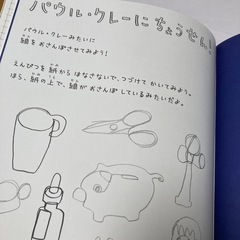 パウル・クレーにちょうせん!
パウル・クレーみたいに
線をおさんぽさせてみよう!
えんぴつを紙からはなさないで、つづけてかいてみよう。
ほら、紙の上で、線がおさんぽしているみたいだよ。